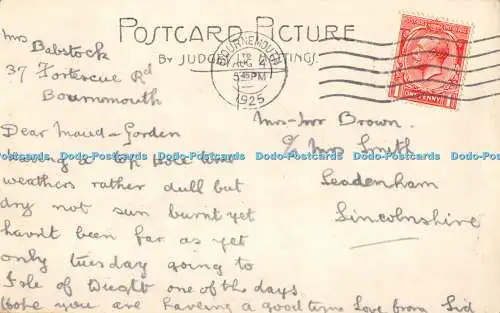 POSTCARD PICTURE
BY JUDGES HASTINGS.
BOURNEMOUTH
AUG 4
5 45 PM
1925
ONE PENNY
Mrs Babstock
37 Fortescue Rd
Bournmouth
Dear Maud & Gorden
Having a top hole time
weathers rather dull but
dry not sun burnt yet
havn't been far as yet
only tuesday going to
Isle of Wieght one of the days.
hope you are haveing a good time Love from Sid
Mr & Mrs Brown.
c/o Mrs Smith
Leadenham
Lincolnshire
Dodo-Postcards Dodo-Postcards Dodo-Postcards Dodo-Postcards